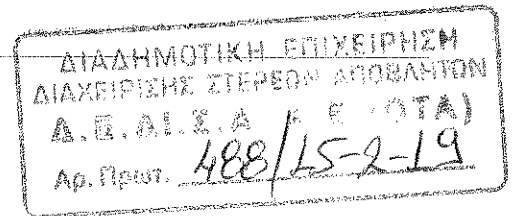 ΔΙΑΔΗΜΟΤΙΚΗ ΕΠΙΧΕΙΡΗΣΗ
ΔΙΑΧΕΙΡΙΣΗΣ ΣΤΕΡΕΩΝ ΑΠΟΒΛΗΤΩΝ
Δ.Ε.ΔΙ.Σ.Α Α Ε (ΟΤΑ)
Αρ. Πρωτ. 488/15-2-19